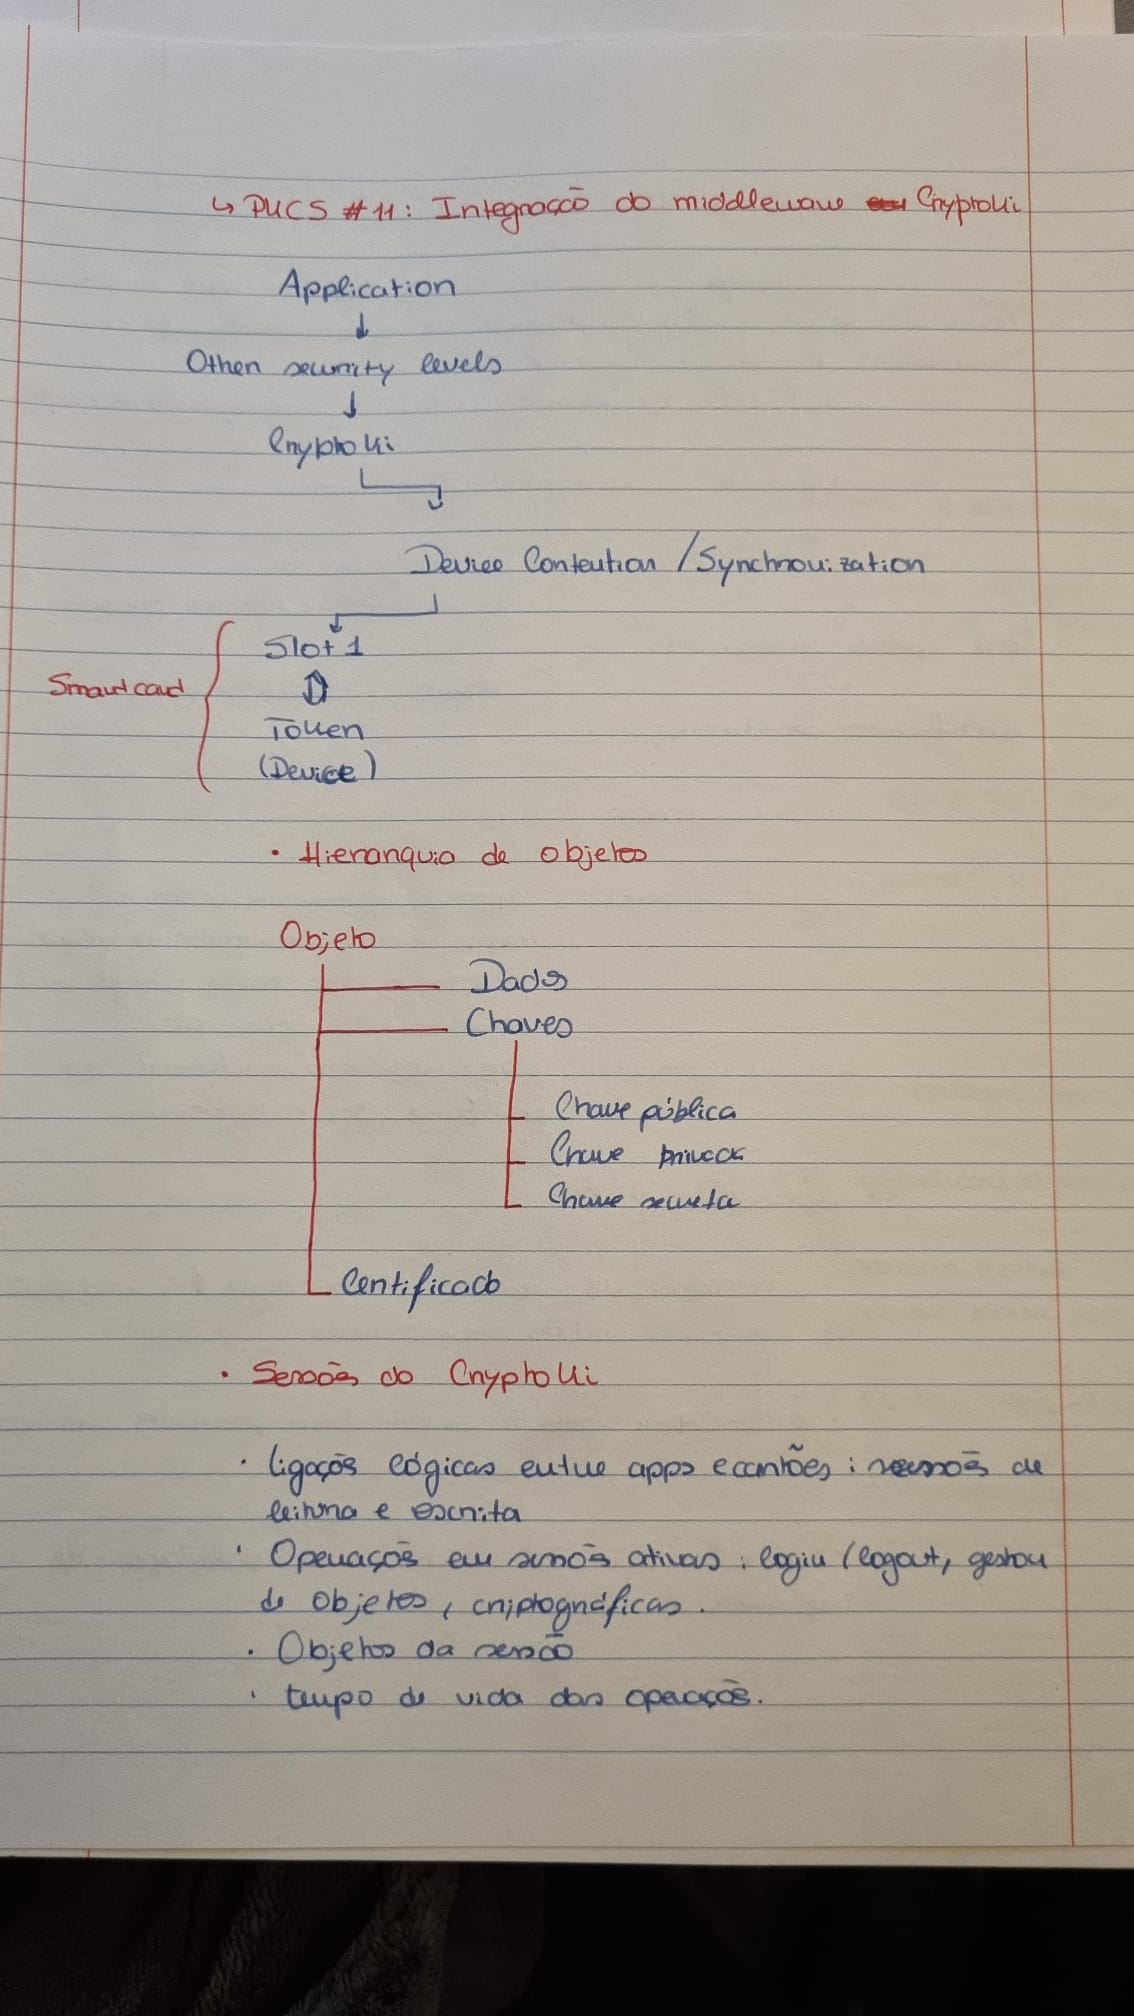 ↳ PKCS #11: Integração do middleware Cryptoki
Application
↓
Other security levels
↓
Cryptoki
Device Contention / Synchronization
Slot 1
Smart card
Token
(Device)
• Hierarquia de objetos
Objeto
Dados
Chaves
Chave pública
Chave privada
Chave secreta
Certificado
• Sessões do Cryptoki
• Ligações lógicas entre apps e cartões: sessões de
leitura e escrita
• Operações em sessões ativas: login/logout, gestão
de objetos, criptográficas.
• Objetos da sessão
• tempo de vida das operações.